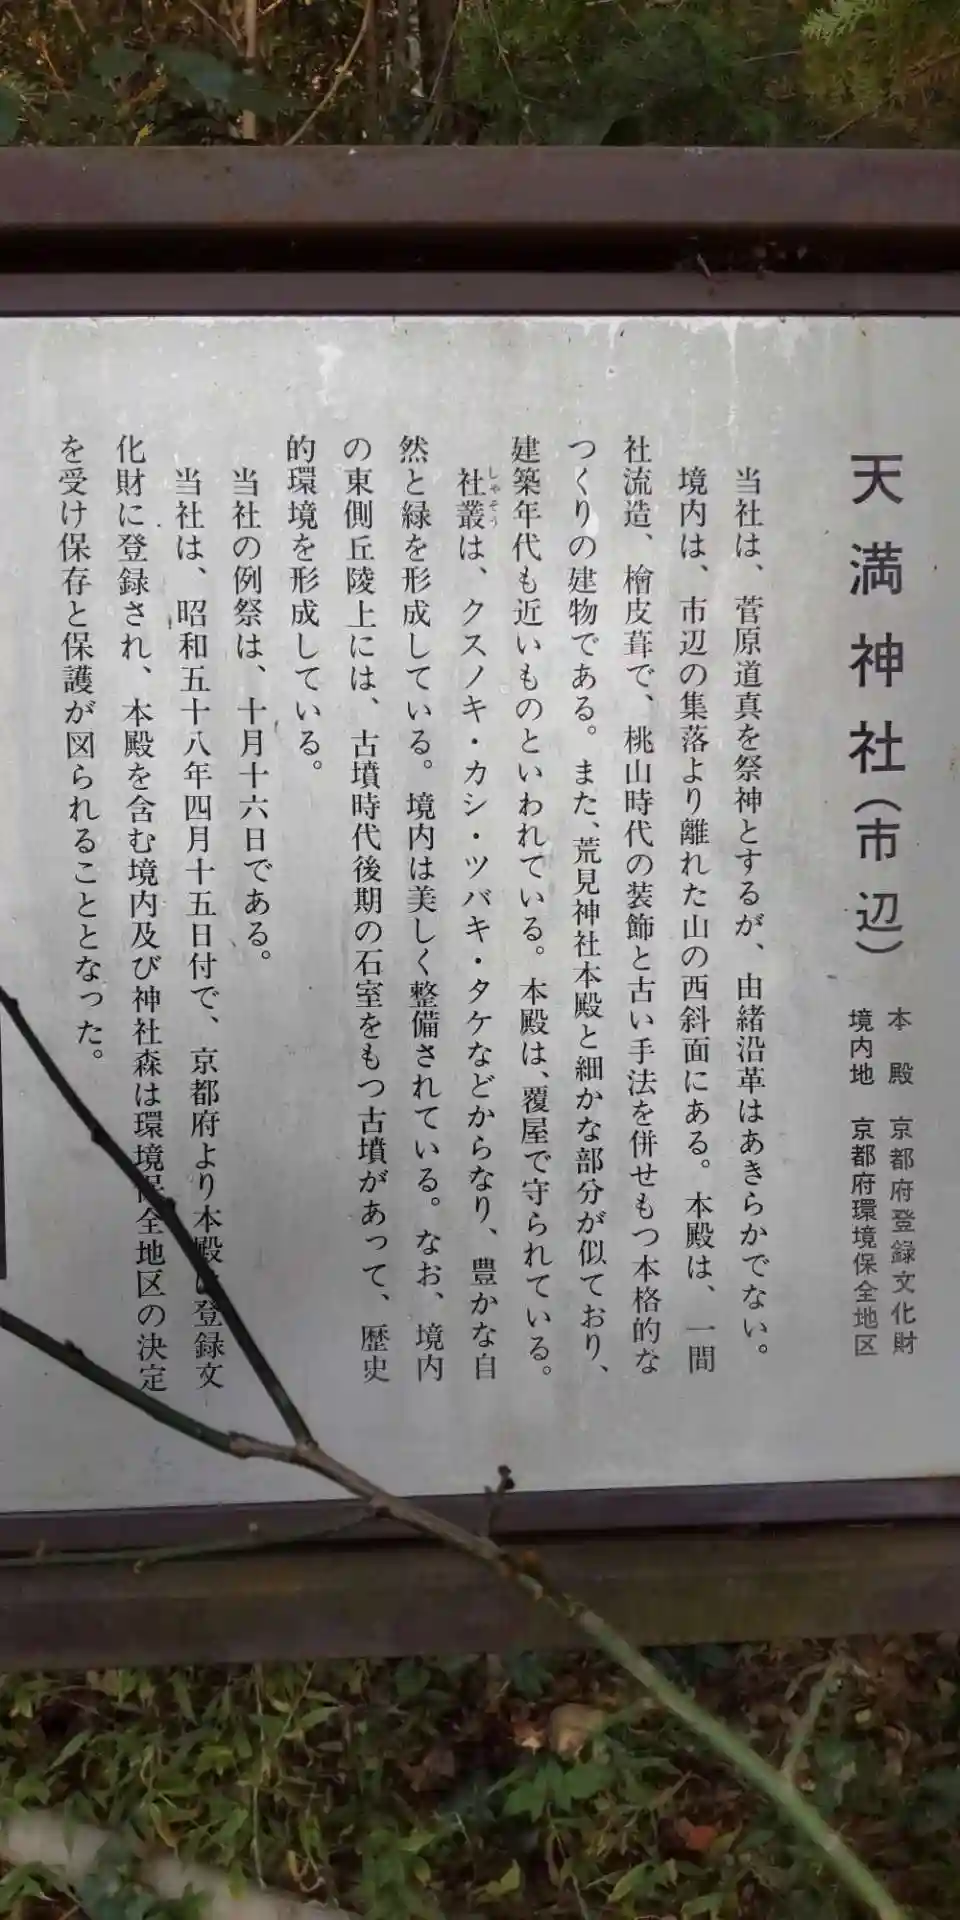 天満神社（市辺）
本　殿　京都府登録文化財
境内地　京都府環境保全地区
当社は、菅原道真を祭神とするが、由緒沿革はあきらかでない。
境内は、市辺の集落より離れた山の西斜面にある。本殿は、一間
社流造、檜皮葺で、桃山時代の装飾と古い手法を併せもつ本格的な
つくりの建物である。また、荒見神社本殿と細かな部分が似ており、
建築年代も近いものといわれている。本殿は、覆屋で守られている。
しゃそう
社叢は、クスノキ・カシ・ツバキ・タケなどからなり、豊かな自
然と緑を形成している。境内は美しく整備されている。なお、境内
の東側丘陵上には、古墳時代後期の石室をもつ古墳があって、歴史
的環境を形成している。
当社の例祭は、十月十六日である。
当社は、昭和五十八年四月十五日付で、京都府より本殿は登録文
化財に登録され、本殿を含む境内及び神社森は環境保全地区の決定
を受け保存と保護が図られることとなった。